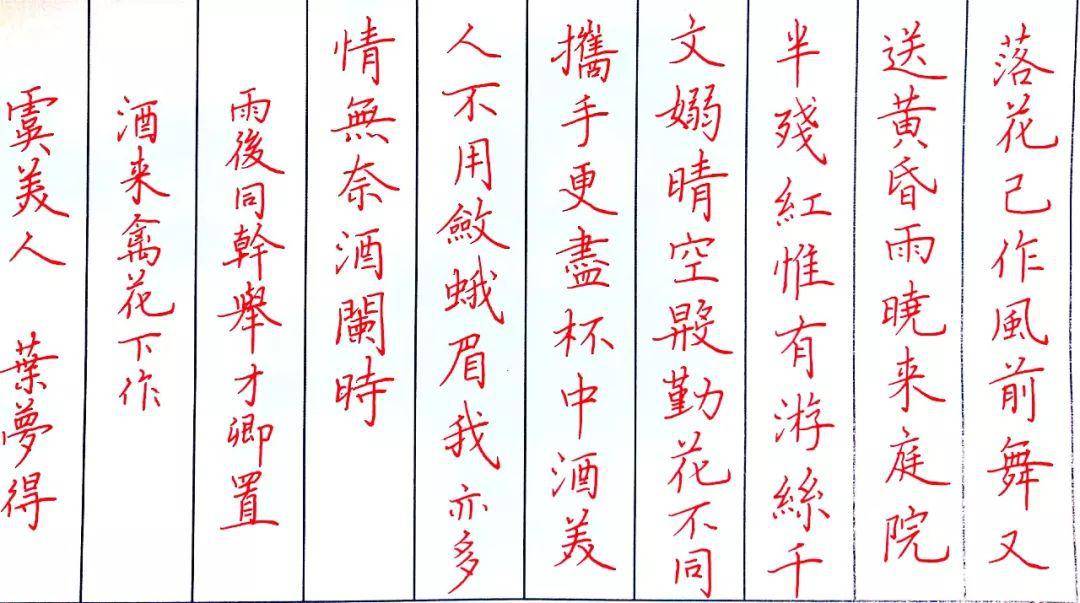 落花己作風前舞又
送黄昏雨曉来庭院
半殘紅惟有游絲千
文嫋晴空殷勤花不同
攜手更盡杯中酒美
人不用斂蛾眉我亦多
情無奈酒闌時
雨後同幹舉才卿置
酒来禽花下作
虞美人 葉夢得